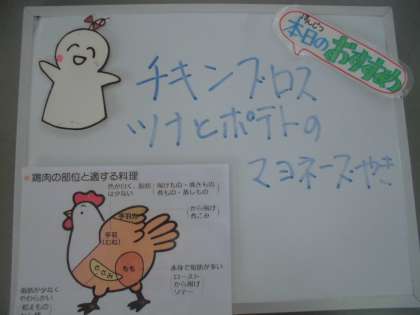 本日の
おすすめ
チキンブロス
ツナとポテトの
マヨネーズやき
鶏肉の部位と適する料理
色が白く、脂肪
は少ない
揚げもの・焼きもの
煮もの・蒸しもの
手羽先
から揚げ
煮こみ
手羽
(むね)
ささみ
もも
赤身で脂肪が多い
ロースト
から揚げ
ソテー
脂肪が少なく
やわらかい